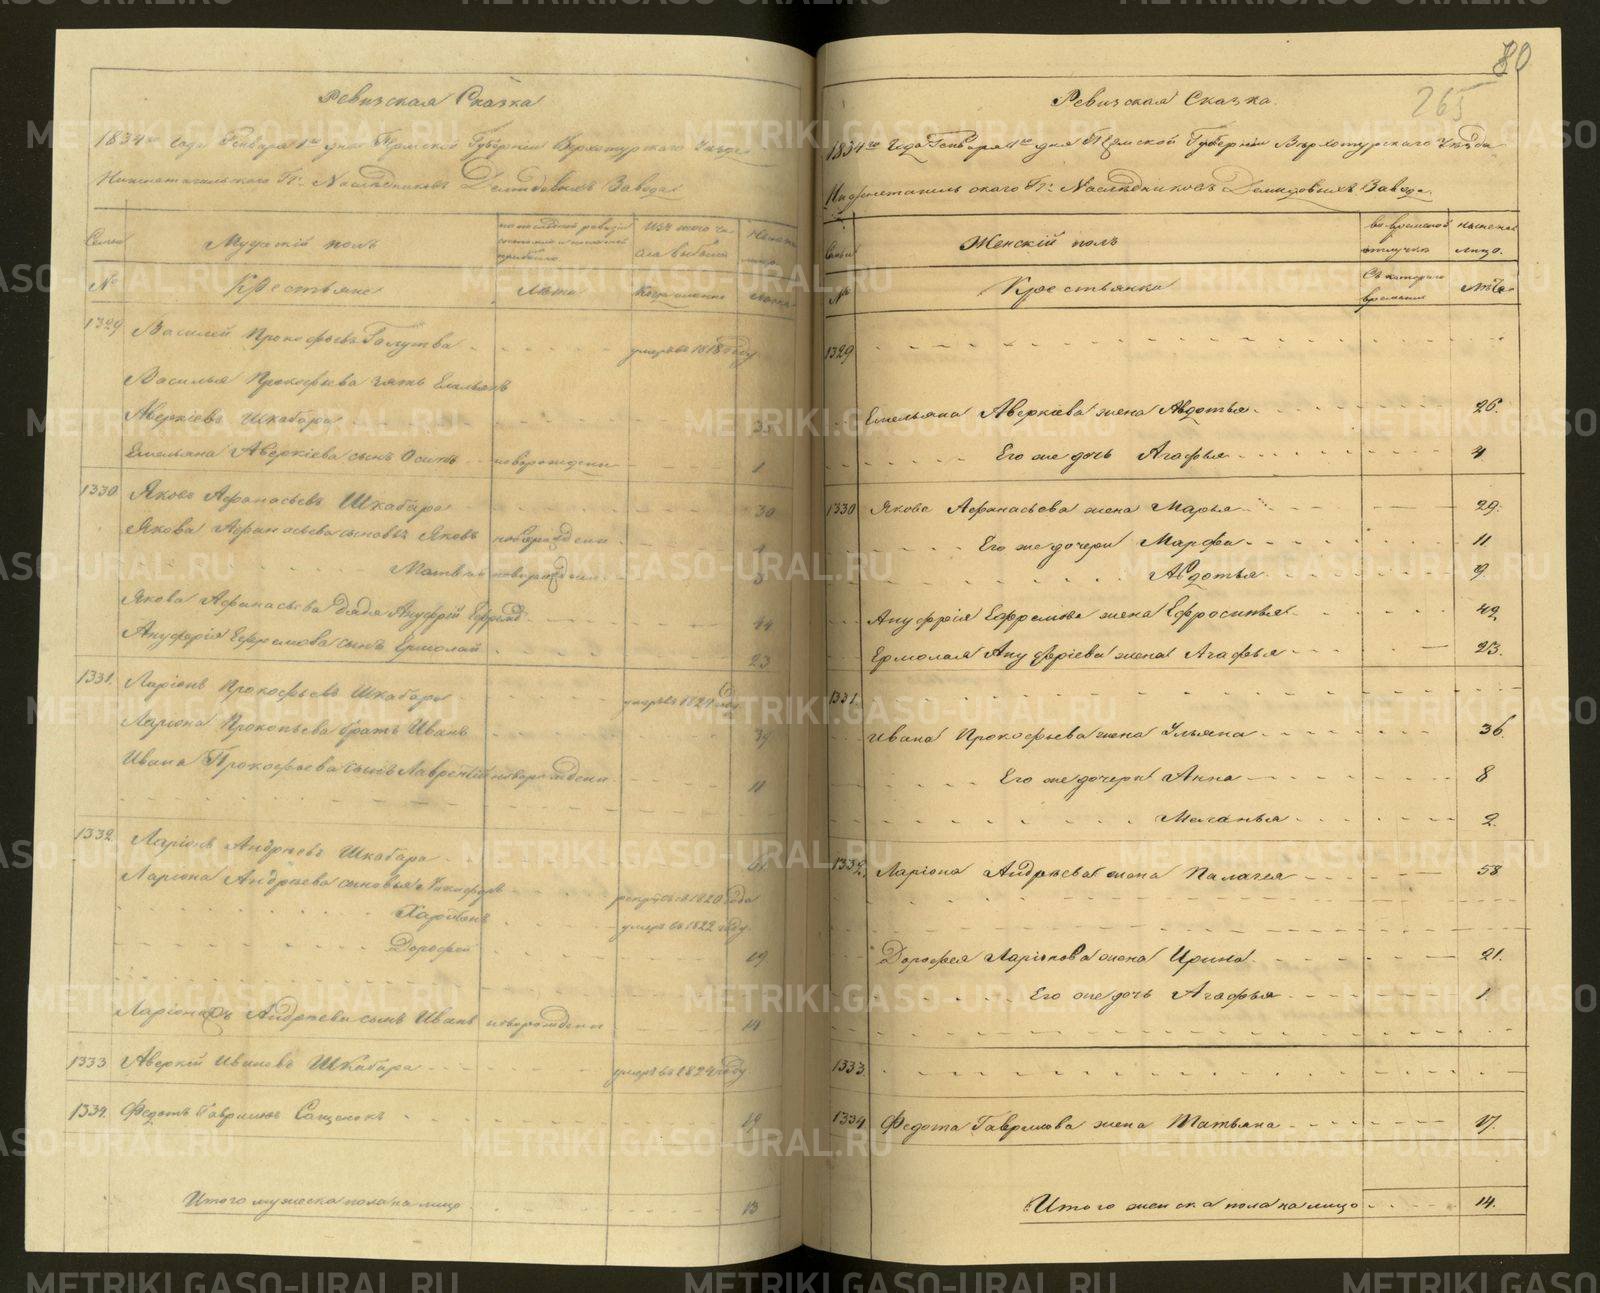 Ревизская Сказка
1834го Года Генваря 1го дня Пермской Губернии Верхотурского Уезда
Нижнетагильского Гг. Наслѣдниковъ Демидовыхъ Завода
Семьи
Мужескій полъ
Изъ того числа выбыло
№
Крестьяне
Лѣта
Когда именно
Лѣта
1329 Василей Прокофьевъ умеръ въ 1818 году
Василья Прокофьева зять Емельянъ
Аверкіевъ Шкабара 35
Емельяна Аверкіева сынъ Осипъ новорожденн 1
1330 Яковъ Афанасьевъ Шкабара 30
Якова Афанасьева сыновья Яковъ новорожденн
Матвей новорожденн 3
Якова Афанасьева дядя Ануфрій Ефремовъ 44
Ануфрія Ефремова сынъ Ермолай 23
1331. Ларіонъ Прокофьевъ Шкабара умеръ въ 1824 году
Ларіона Прокопьева братъ Иванъ 39
Ивана Прокофьева сынъ Лаврентій новорожденн 11
1332. Ларіонъ Андреевъ Шкабара
Ларіона Андреева сыновья Никифоръ рекрутъ съ 1820 года
Харитонъ умеръ въ 1822 году
Дорофей 19
Ларіона Андреева сынъ Иванъ новорожденн 14
1333 Аверкій Ивановъ Шкабара умеръ въ 1824 году
1334. Федотъ Гавриловъ 19
Итого мужеска пола на лицо 13
80
265
Ревизская Сказка.
1834го Года Генваря 1го дня Пермской Губерніи Верхотурского Уѣзда
Нижнетагильского Гг. Наслѣдниковъ Демидовыхъ Завода.
Семьи
Женскій полъ
во временной отлучкѣ
ныне на лицо.
№
Крестьянки
Съ котораго времени
лѣта
1329
Емельяна Аверкіева жена Авдотья 26.
Его же дочь Агафья 4
1330 Якова Афанасьева жена Марья 29.
Его же дочери Марфа 11
Авдотья 9
Ануфрія Ефремова жена Ефросинья 42.
Ермолая Ануфріева жена Агафья 23.
1331.
Ивана Прокофьева жена Ульяна 36.
Его же дочери Анна 8
Меланья 2.
1332. Ларіона Андреева жена Палагея 58
Дорофея Ларіонова жена Ирина 21.
Его же дочь Агафья 1
1333.
1334 Федота Гаврилова жена Татьяна 17.
Итого женска пола на лицо 14.
METRIKI.GASO-URAL.RU